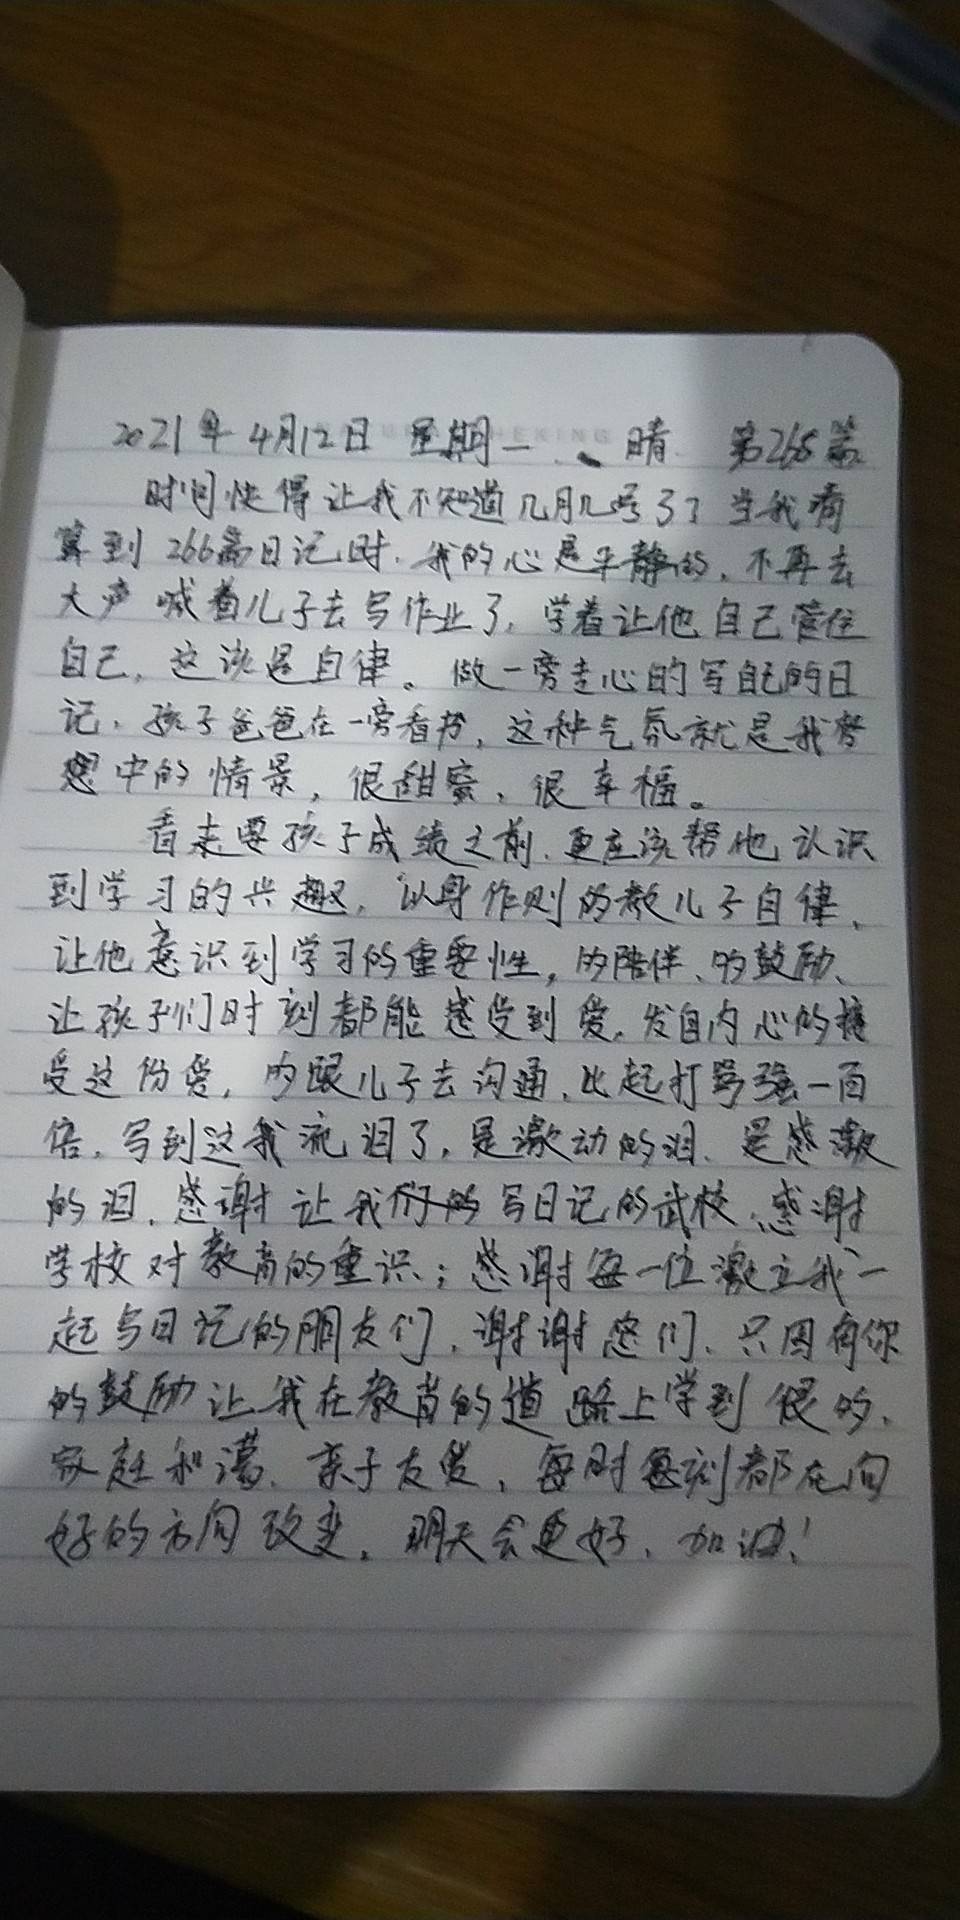 2021年4月12日 星期一 晴 第268篇
时间快得让我不知道几月几号了了 当我
算到266篇日记时、我的心是平静的,不再去
大声喊着儿子去写作业了,学着让他自己管住
自己,这该是自律。做一旁走心的写自己的日
记、孩子爸爸在一旁看书,这种气氛就是我梦
想中的情景,很甜蜜、很幸福。
看来要孩子成绩之前、更应该帮他认识
到学习的兴趣,以身作则的教儿子自律、
让他意识到学习的重要性,的陪伴、的鼓励、
让孩子们时刻都能感受到爱,发自内心的接
受这份爱,的跟儿子去沟通,比起打骂强一百
倍,写到这我流泪了,是激动的泪、是感激
的泪、感谢让我们的写日记的武校、感谢
学校对教育的重识;感谢每一位激立我一
起写日记的朋友们,谢谢您们、只因有你
的鼓励让我在教育的道路上学到很的、
家庭和谐、亲子友爱,每时每刻都在向
好的方向改变,明天会更好、加油!